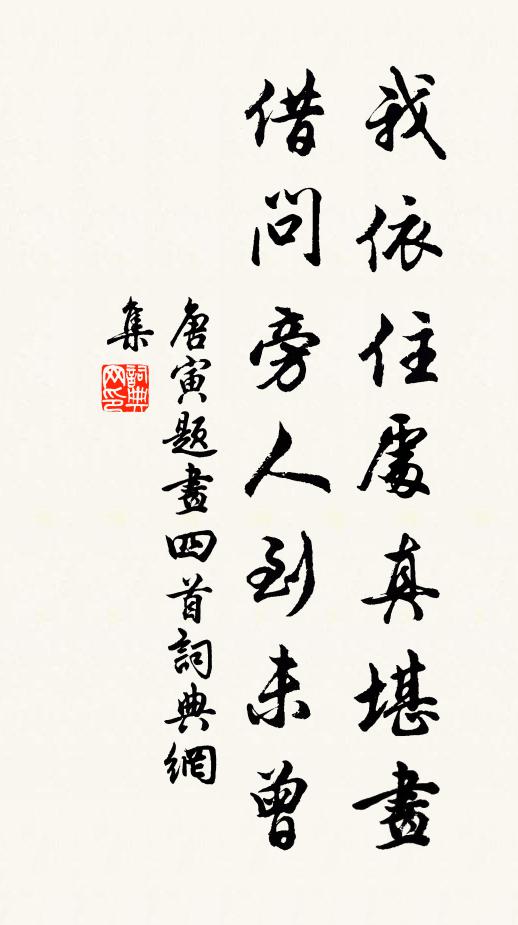 我依住處真堪畫
借問旁人到未曾
唐寅題畫四首詞典網
集
詞典网印